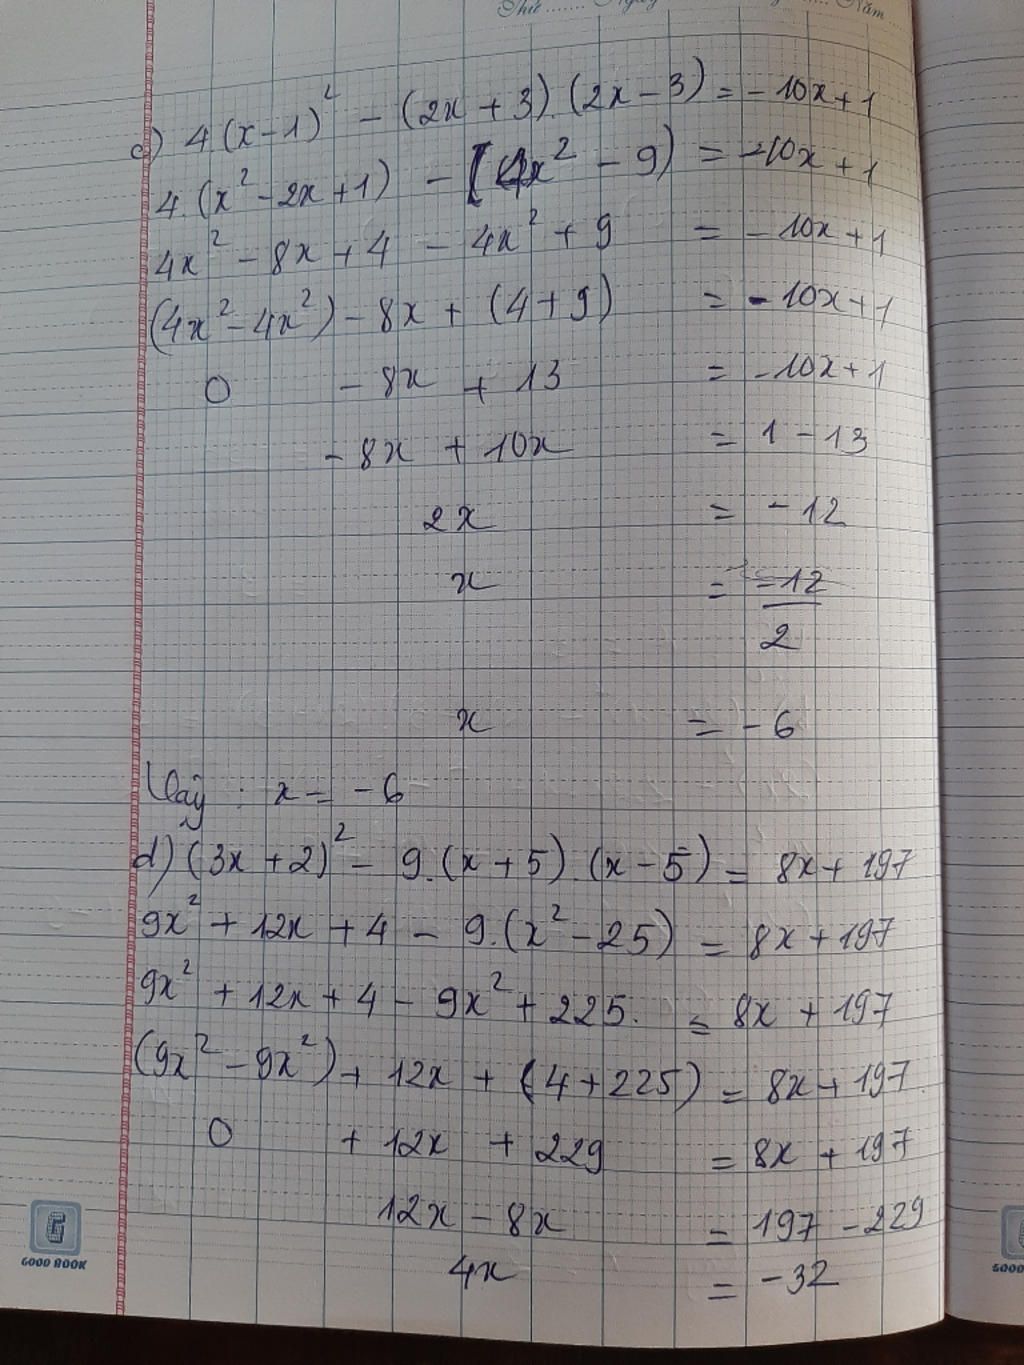 Thứ ....... Ngày ....... Năm ...
c) 4(x-1)² - (2x+3).(2x-3) = -10x+1
4.(x²-2x+1) - (4x²-9) = -10x+1
4x² - 8x + 4 - 4x² + 9 = -10x+1
(4x²-4x²) - 8x + (4+9) = -10x+1
0 - 8x + 13 = -10x+1
-8x + 10x = 1 - 13
2x = -12
x = -12/2
x = -6
Vậy : x = -6
d) (3x+2)² - 9.(x+5).(x-5) = 8x+197
9x² + 12x + 4 - 9.(x²-25) = 8x+197
9x² + 12x + 4 - 9x² + 225. = 8x + 197
(9x² - 9x²) + 12x + (4+225) = 8x+197
0 + 12x + 229 = 8x + 197
12x - 8x = 197 - 229
4x = -32
G
GOOD BOOK